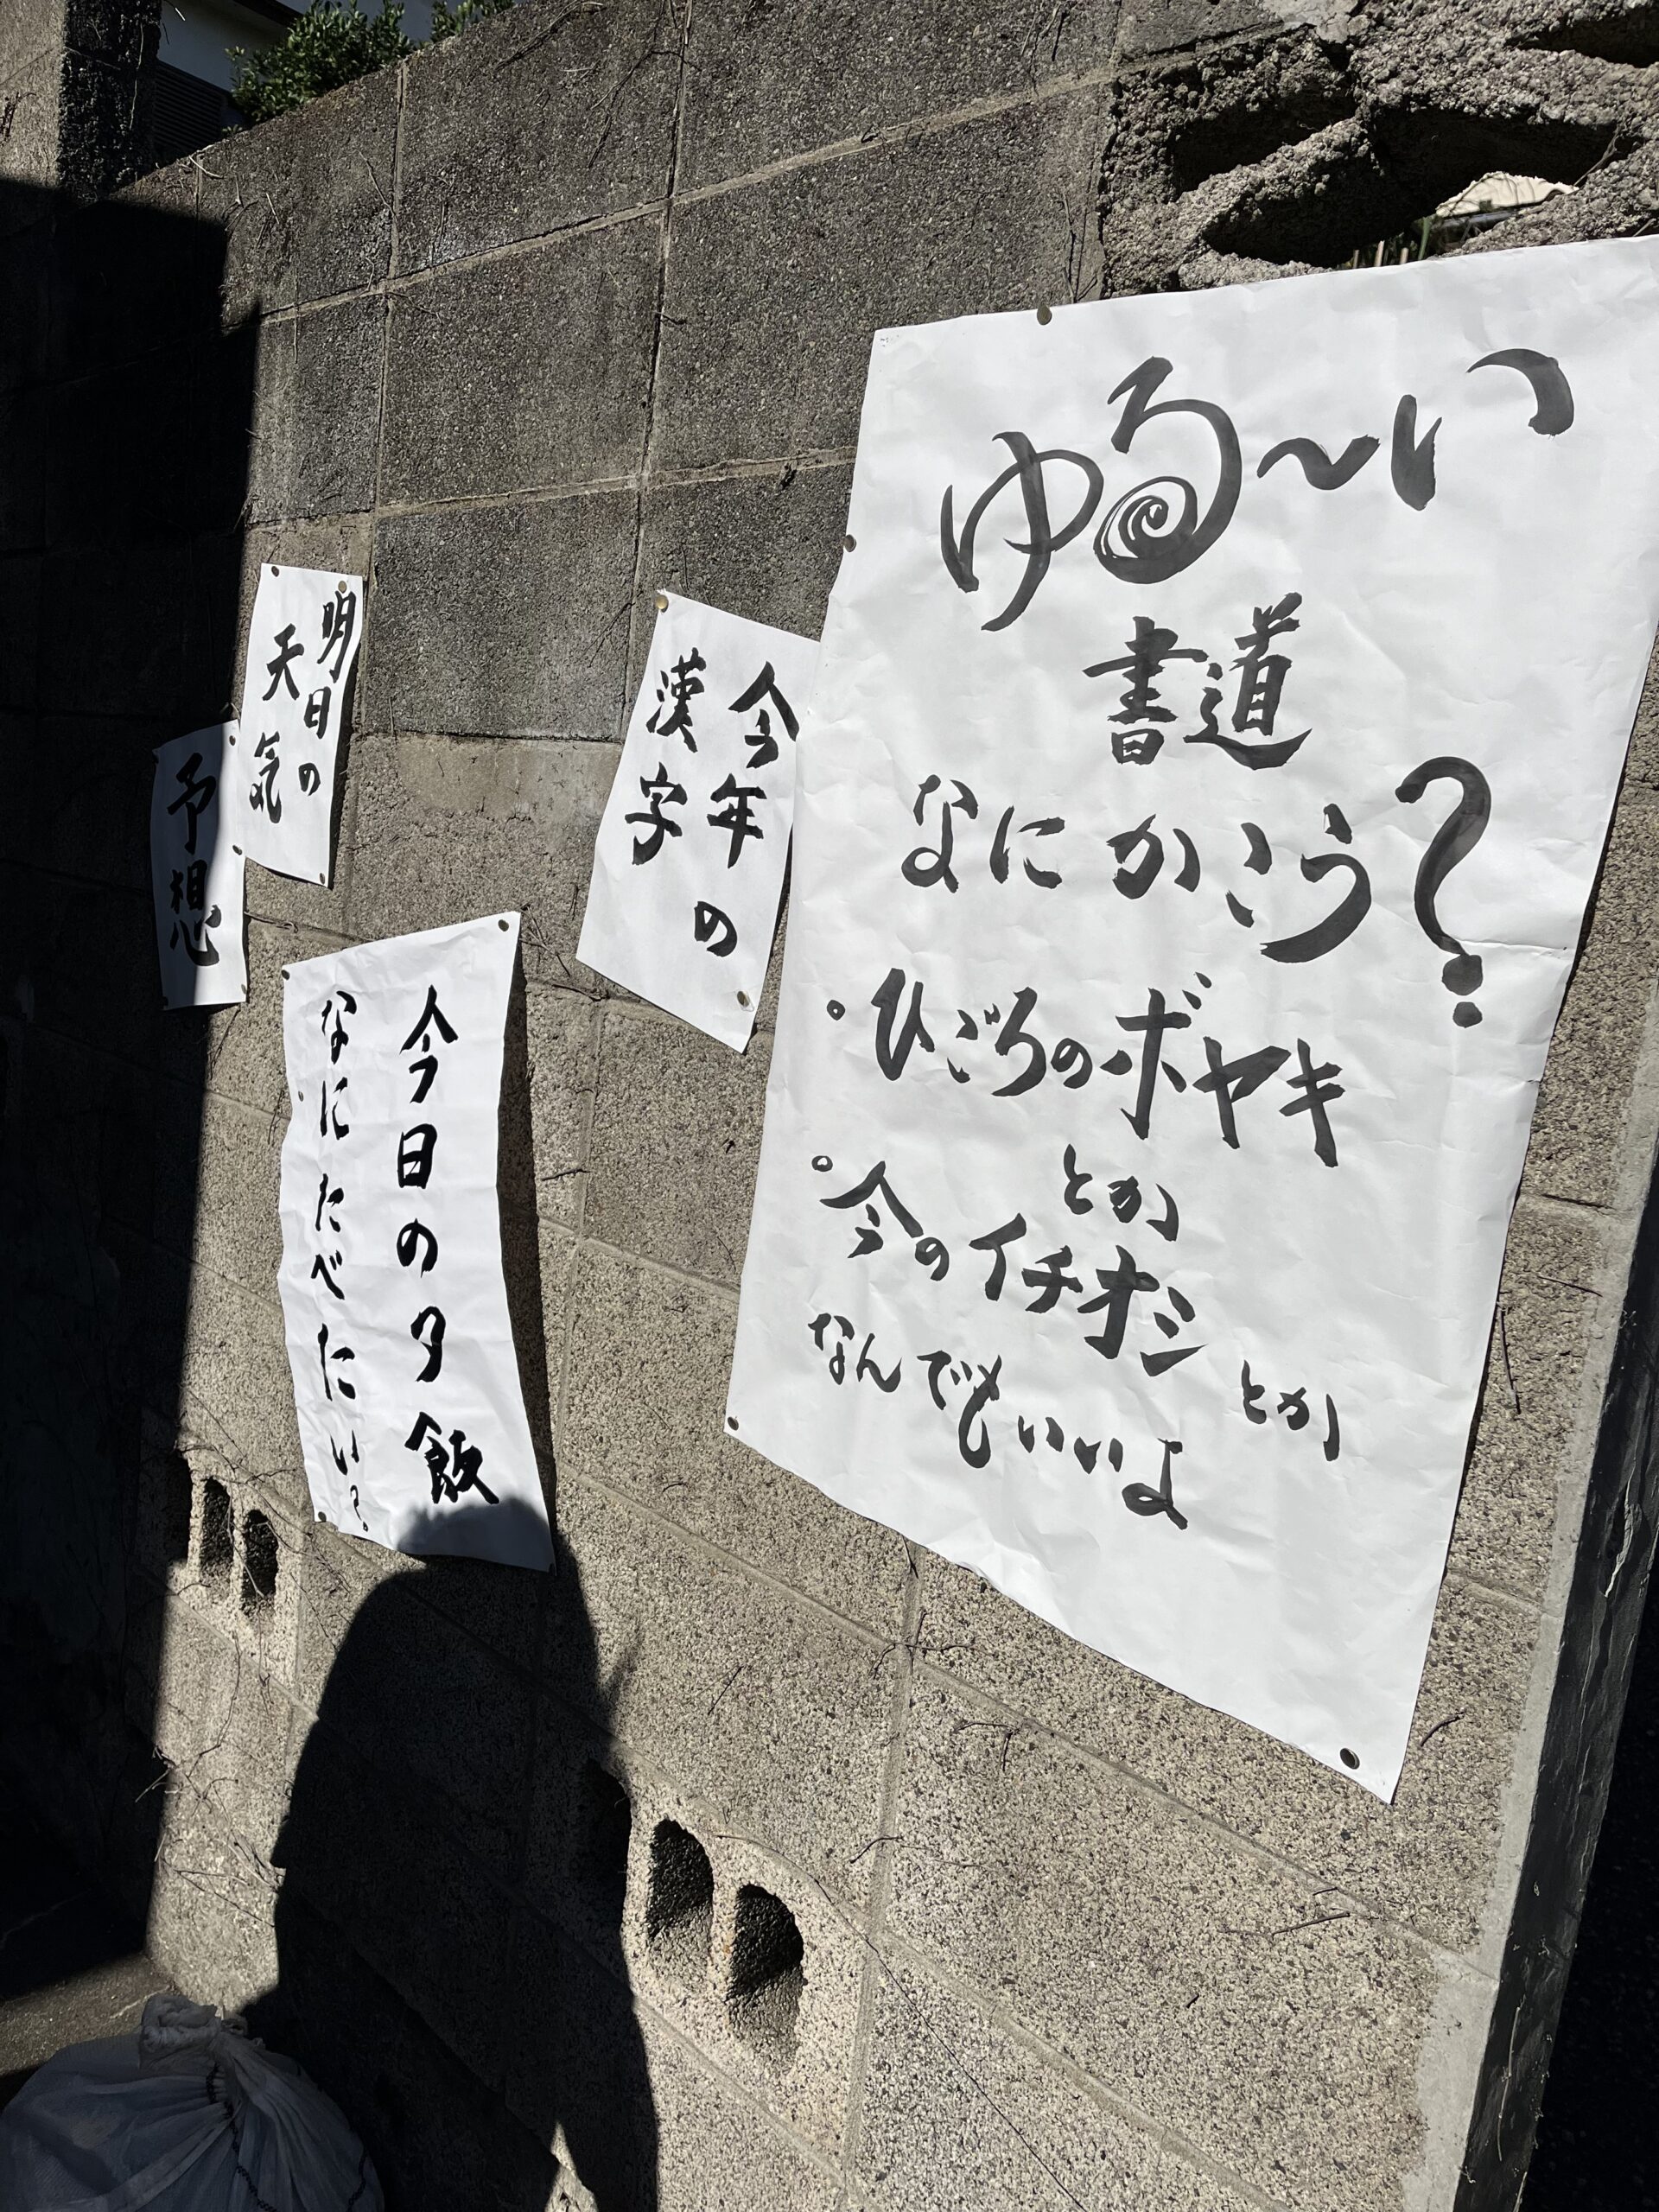 ゆる〜い
書道
なにかこう?
・ひごろのボヤキ
とか
・今のイチオシ
とか
なんでもいいよ
今年の
漢字
明日の
天気
予想
今日の夕飯
なにたべたい?